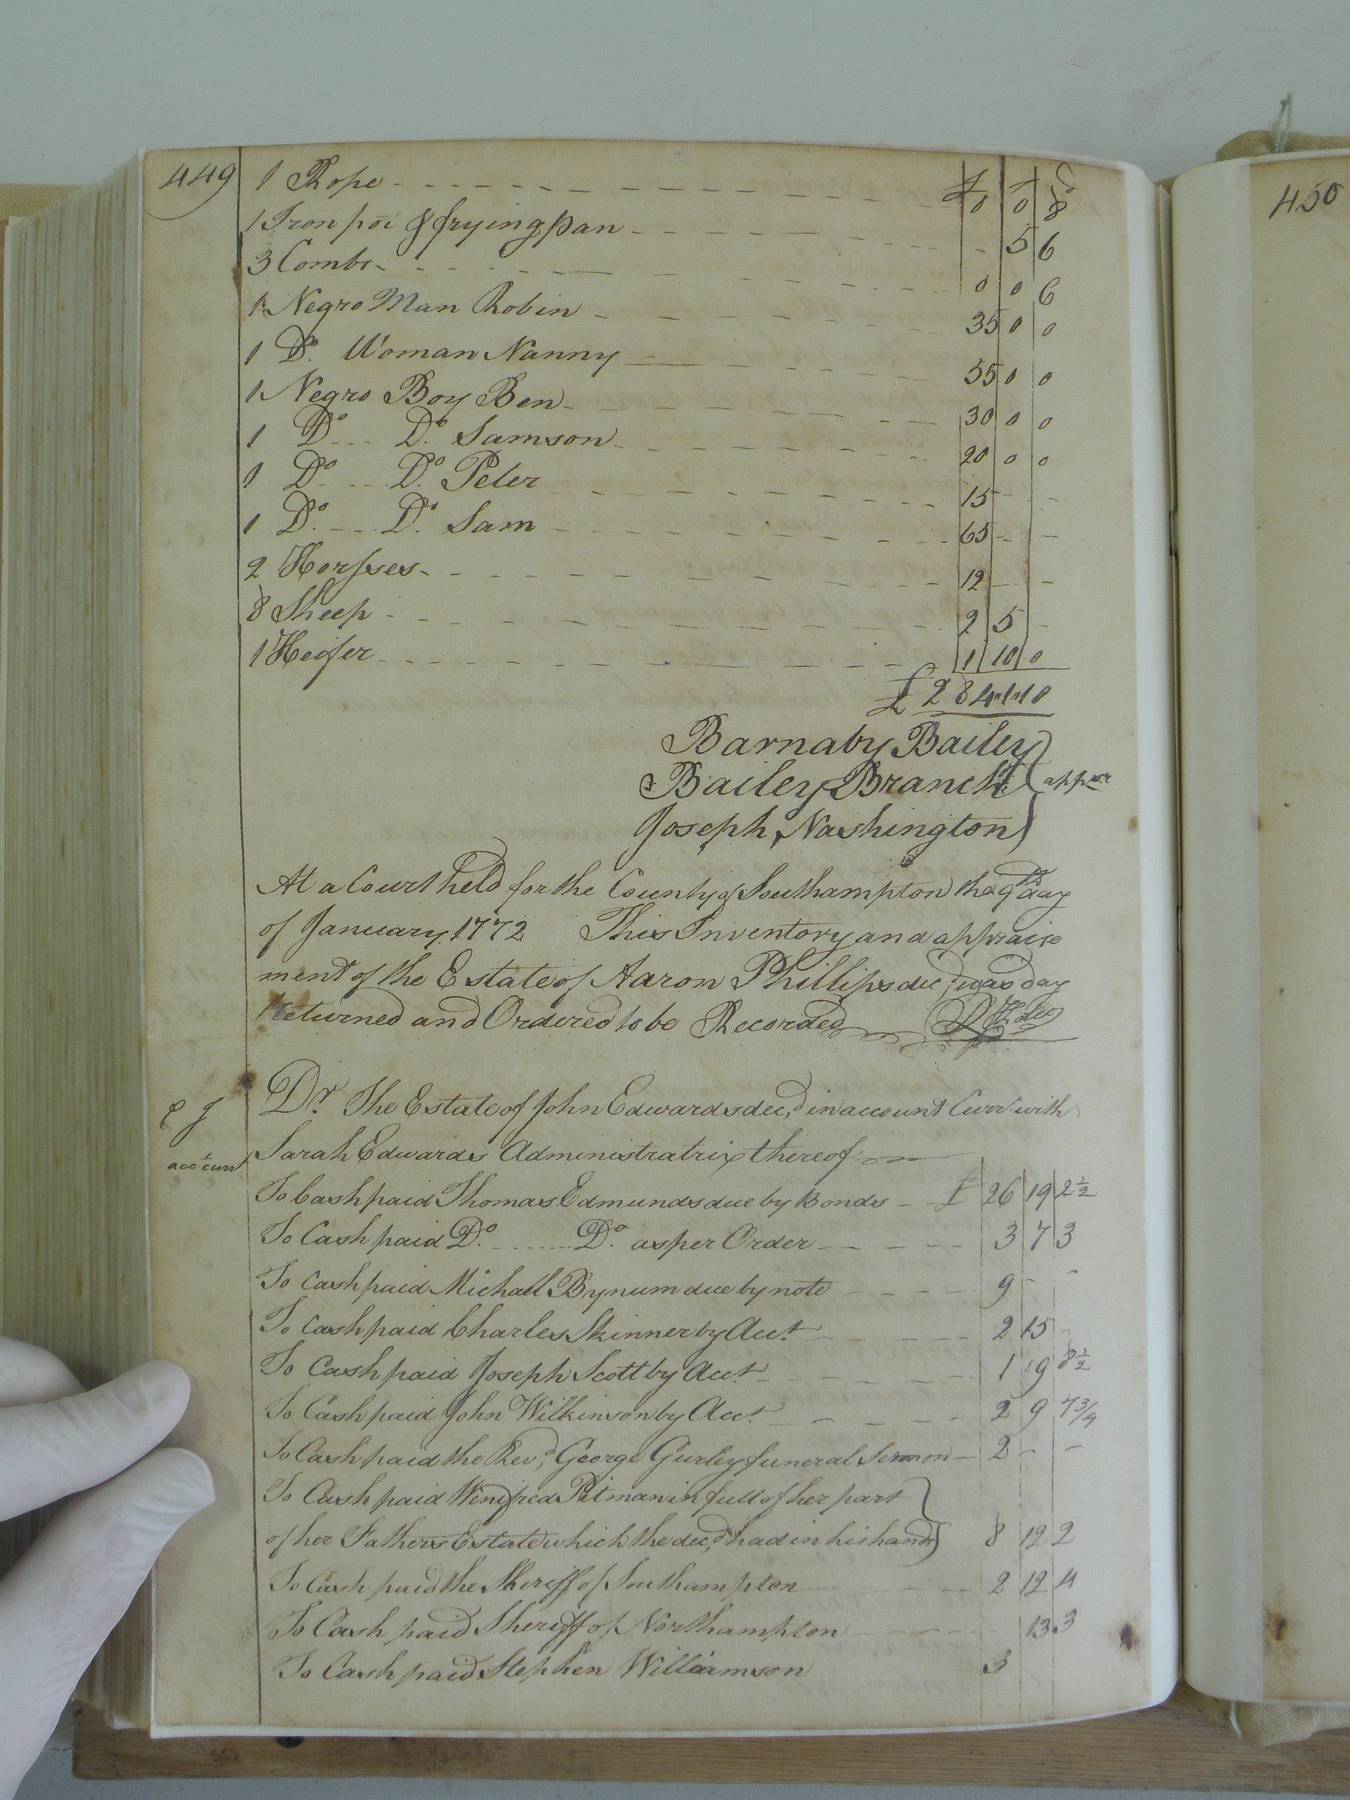 449
450
1 Rope - - - - £ 0 | 0 | 8
1 Iron pot & frying pan - - - - 5 | 6
3 Combs - - - - 0 | 0 | 6
1 Negro Man Robin - - - - 35 | 0 | 0
1 Do. Woman Nanny - - - - 55 | 0 | 0
1 Negro Boy Ben - - - - 30 | 0 | 0
1 Do. - - Do. Samson - - - - 20 | 0 | 0
1 Do. - - Do. Peter - - - - 15 | - | -
1 Do. - - Do. Sam - - - - 65 | - | -
2 Horses - - - - 12 | - | -
8 Sheep - - - - 2 | 5 | -
1 Heifer - - - - 1 | 10 | 0
£ 284..1..10
Barnaby Bailey
Bailey Branch } apprs
Joseph Washington
At a Court held for the County of Southampton the 9th day
of January 1772 This Inventory and appraise
ment of the Estate of Aaron Phillips decd was day
Returned and Ordered to be Recorded
Dr. The Estate of John Edwards decd, in account Curr. with
acct curr
Sarah Edwards Administratrix thereof
To Cash paid Thomas Edmunds due by Bonds - £ 26 | 19 | 2 1/2
To Cash paid Do. - - - - Do. as per Order - - - - 3 | 7 | 3
To Cash paid Michael Bynum due by note - - - - 9 | - | -
To Cash paid Charles Skinner by Acct. - - - - 2 | 15 | -
To Cash paid Joseph Scott by Acct. - - - - 1 | 9 | 8 1/2
To Cash paid John Wilkinson by Acct. - - - - 2 | 9 | 7 3/4
To Cash paid the Revd, George Gurley funeral Sermon - 2 | - | -
To Cash paid Winifred Pitman in full of her part
of her Fathers Estate which the decd, had in his hands } 8 | 12 | 2
To Cash paid the Sheriff of Southampton - - - - 2 | 12 | 4
To Cash paid Sheriff of Northampton - - - - 13 | 3
To Cash paid Stephen Williamson 3